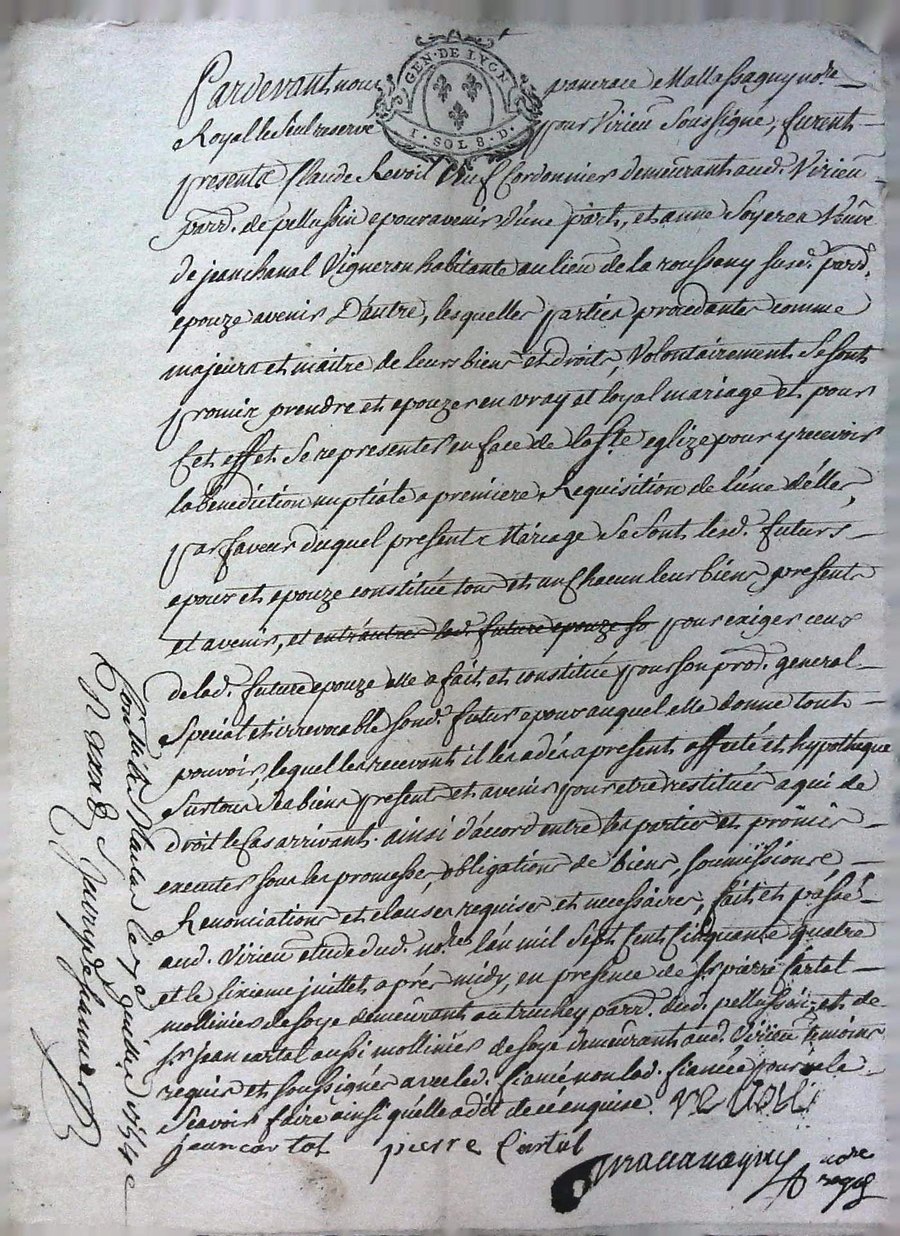 GEN · DE LYON
I · SOL 8. D.
Pardevant nous panerace Mallassagny nore
Royal le seul reservé pour Virieu soussigné, furent
presents Claude Revoil veuf Cordonnier demeurant aud. Virieu
parr. de pellussin epoux avenir d'une part, et anne Soyere veuve
de jean chanal Vigneron habitante au lieu de la roussany susd. parr.
epouze avenir D'autre, lesquelles parties procedantes comme
majeurs et maitre de leurs biens et droits, volontairement se sont
promis prendre et epouzer en vray et loyal mariage et pour
cet effet se representer en face de la ste eglize pour y recevoir
la benediction nuptiale a premiere Requisition de l'une d'elles,
par faveur duquel present Mariage se sont lesd. futurs
epoux et epouze constitué tous et un chacun leurs biens presents
et avenir, et entr'autres lad. future epouze so pour exiger ceux
de lad. future epouze elle a fait et constitué pour son prod. general
special et irrevocable sond. futur epoux auquel elle donne tout
pouvoir, lequel les recevant il les a dés a present affecté et hypotheque
sur tous ses biens presents et avenir pour etre restitués a qui de
droit le cas arrivant. ainsi d'accord entre les parties et promis
executer sous les promesses, obligations de biens, soumissions
Renonciations et clauses requises et necessaires, fait et passé
aud. Virieu etude dud. nore. l'an mil sept cent cinquante quatre
et le sixieme juillet apres midy, en presence de sr pierre Cartal
mollinier de soye demeurant au truchey parr. dud. pellussin, et de
sr. jean cartal aussi mollinier de soye demeurant aud. Virieu temoins
requis et soussignés avec led. fiancé non lad. fiancée pour ne le
scavoir faire ainsi qu'elle a dit de ce enquise. Revoil
jean cartal pierre Cartal
nore
royal
Controlé le 7e juillet 1754